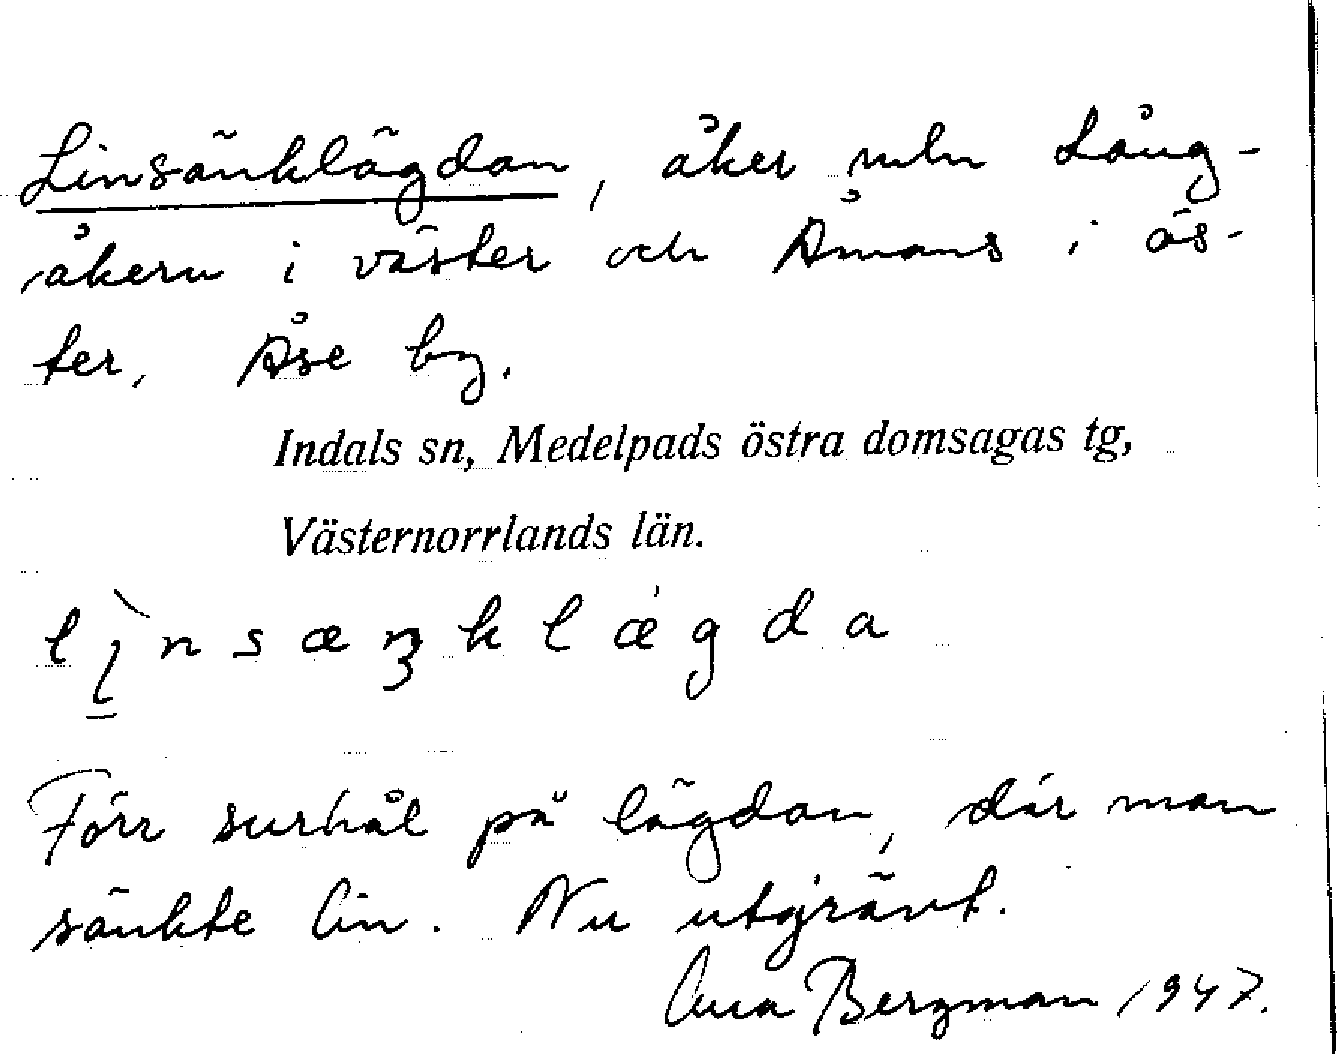 Linsänklägdan, åker mln Lång-
åkern i väster och Åmans i ös-
ter, Åse by.
Indals sn, Medelpads östra domsagas tg,
Västernorrlands län.
lìnsæŋklǽgda
Förr surhål på lägdan, där man
sänkte lin. Nu utgrävt.
Anna Bergman 1947.